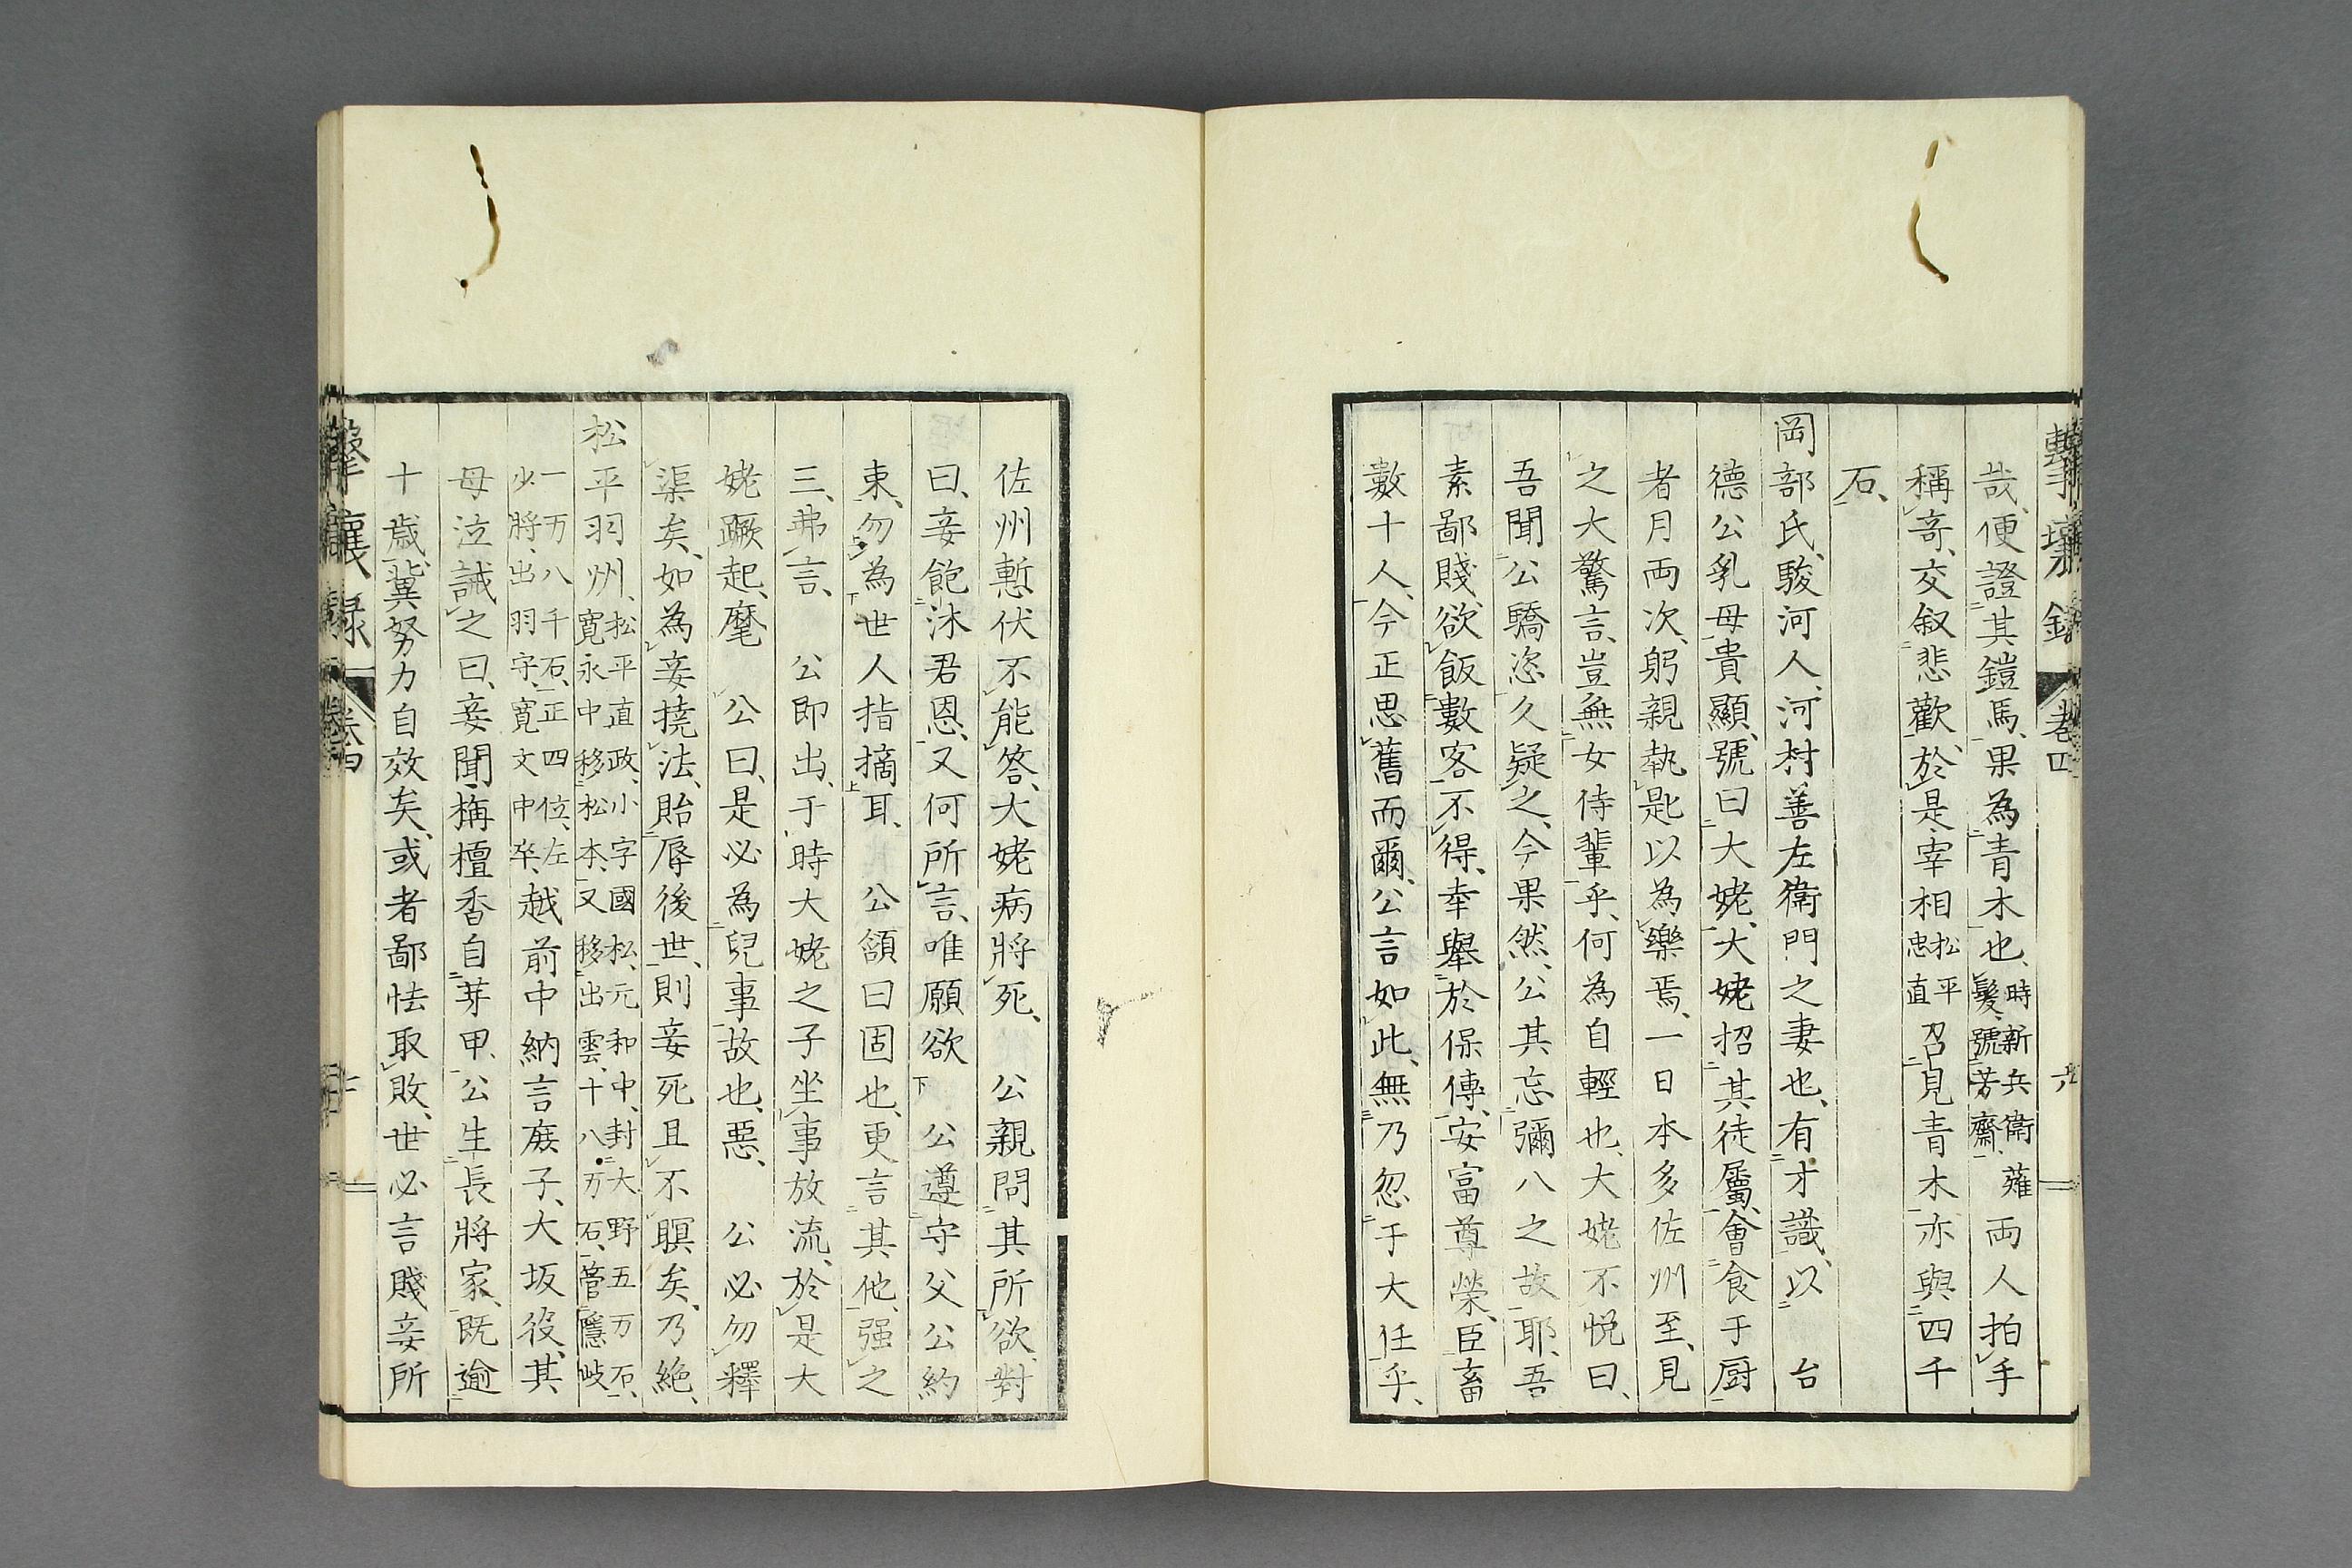 擊壤錄 卷四 六
哉、便證其鎧馬、果為青木也、時新兵衛薙髮、號芳齋、兩人拍手
稱奇、交叙悲歡、於是宰相松平忠直召見青木、亦與四千
石、
岡部氏、駿河人、河村善左衛門之妻也、有才識、以 台
德公乳母貴顯、號曰大姥、大姥招其徒屬、會食于厨
者月兩次、躬親執匙以為樂焉、一日本多佐州至、見
之大驚言、豈無女侍輩乎、何為自輕也、大姥不悦曰、
吾聞公驕恣久疑之、今果然、公其忘彌八之故耶、吾
素鄙賤、欲飯數客不得、幸舉於保傅、安富尊榮、臣畜
數十人、今正思舊而爾、公言如此、無乃忽于大任乎、
佐州慙伏不能答、大姥病將死、 公親問其所欲、對
曰、妾飽沐君恩、又何所言、唯願欲 公遵守父公約
束、勿為世人指摘耳、 公頷曰固也、更言其他、强之
三、弗言、 公即出、于時大姥之子坐事放流、於是大
姥蹶起、麾 公曰、是必為兒事故也、惡、 公必勿釋
渠矣、如為妾撓法、貽辱後世、則妾死且不瞑矣、乃絶、
松平羽州、松平直政、小字國松、元和中、封大野五万石、寛永中移松本、又移出雲、十八万石、管隱岐
一万八千石、正四位、左少將、出羽守、寛文中卒、越前中納言庶子、大坂役、其
母泣誡之曰、妾聞、栴檀香自芽甲、公生長將家、既逾
十歲、冀努力自效矣、或者鄙怯取敗、世必言賤妾所
擊壤錄 卷四